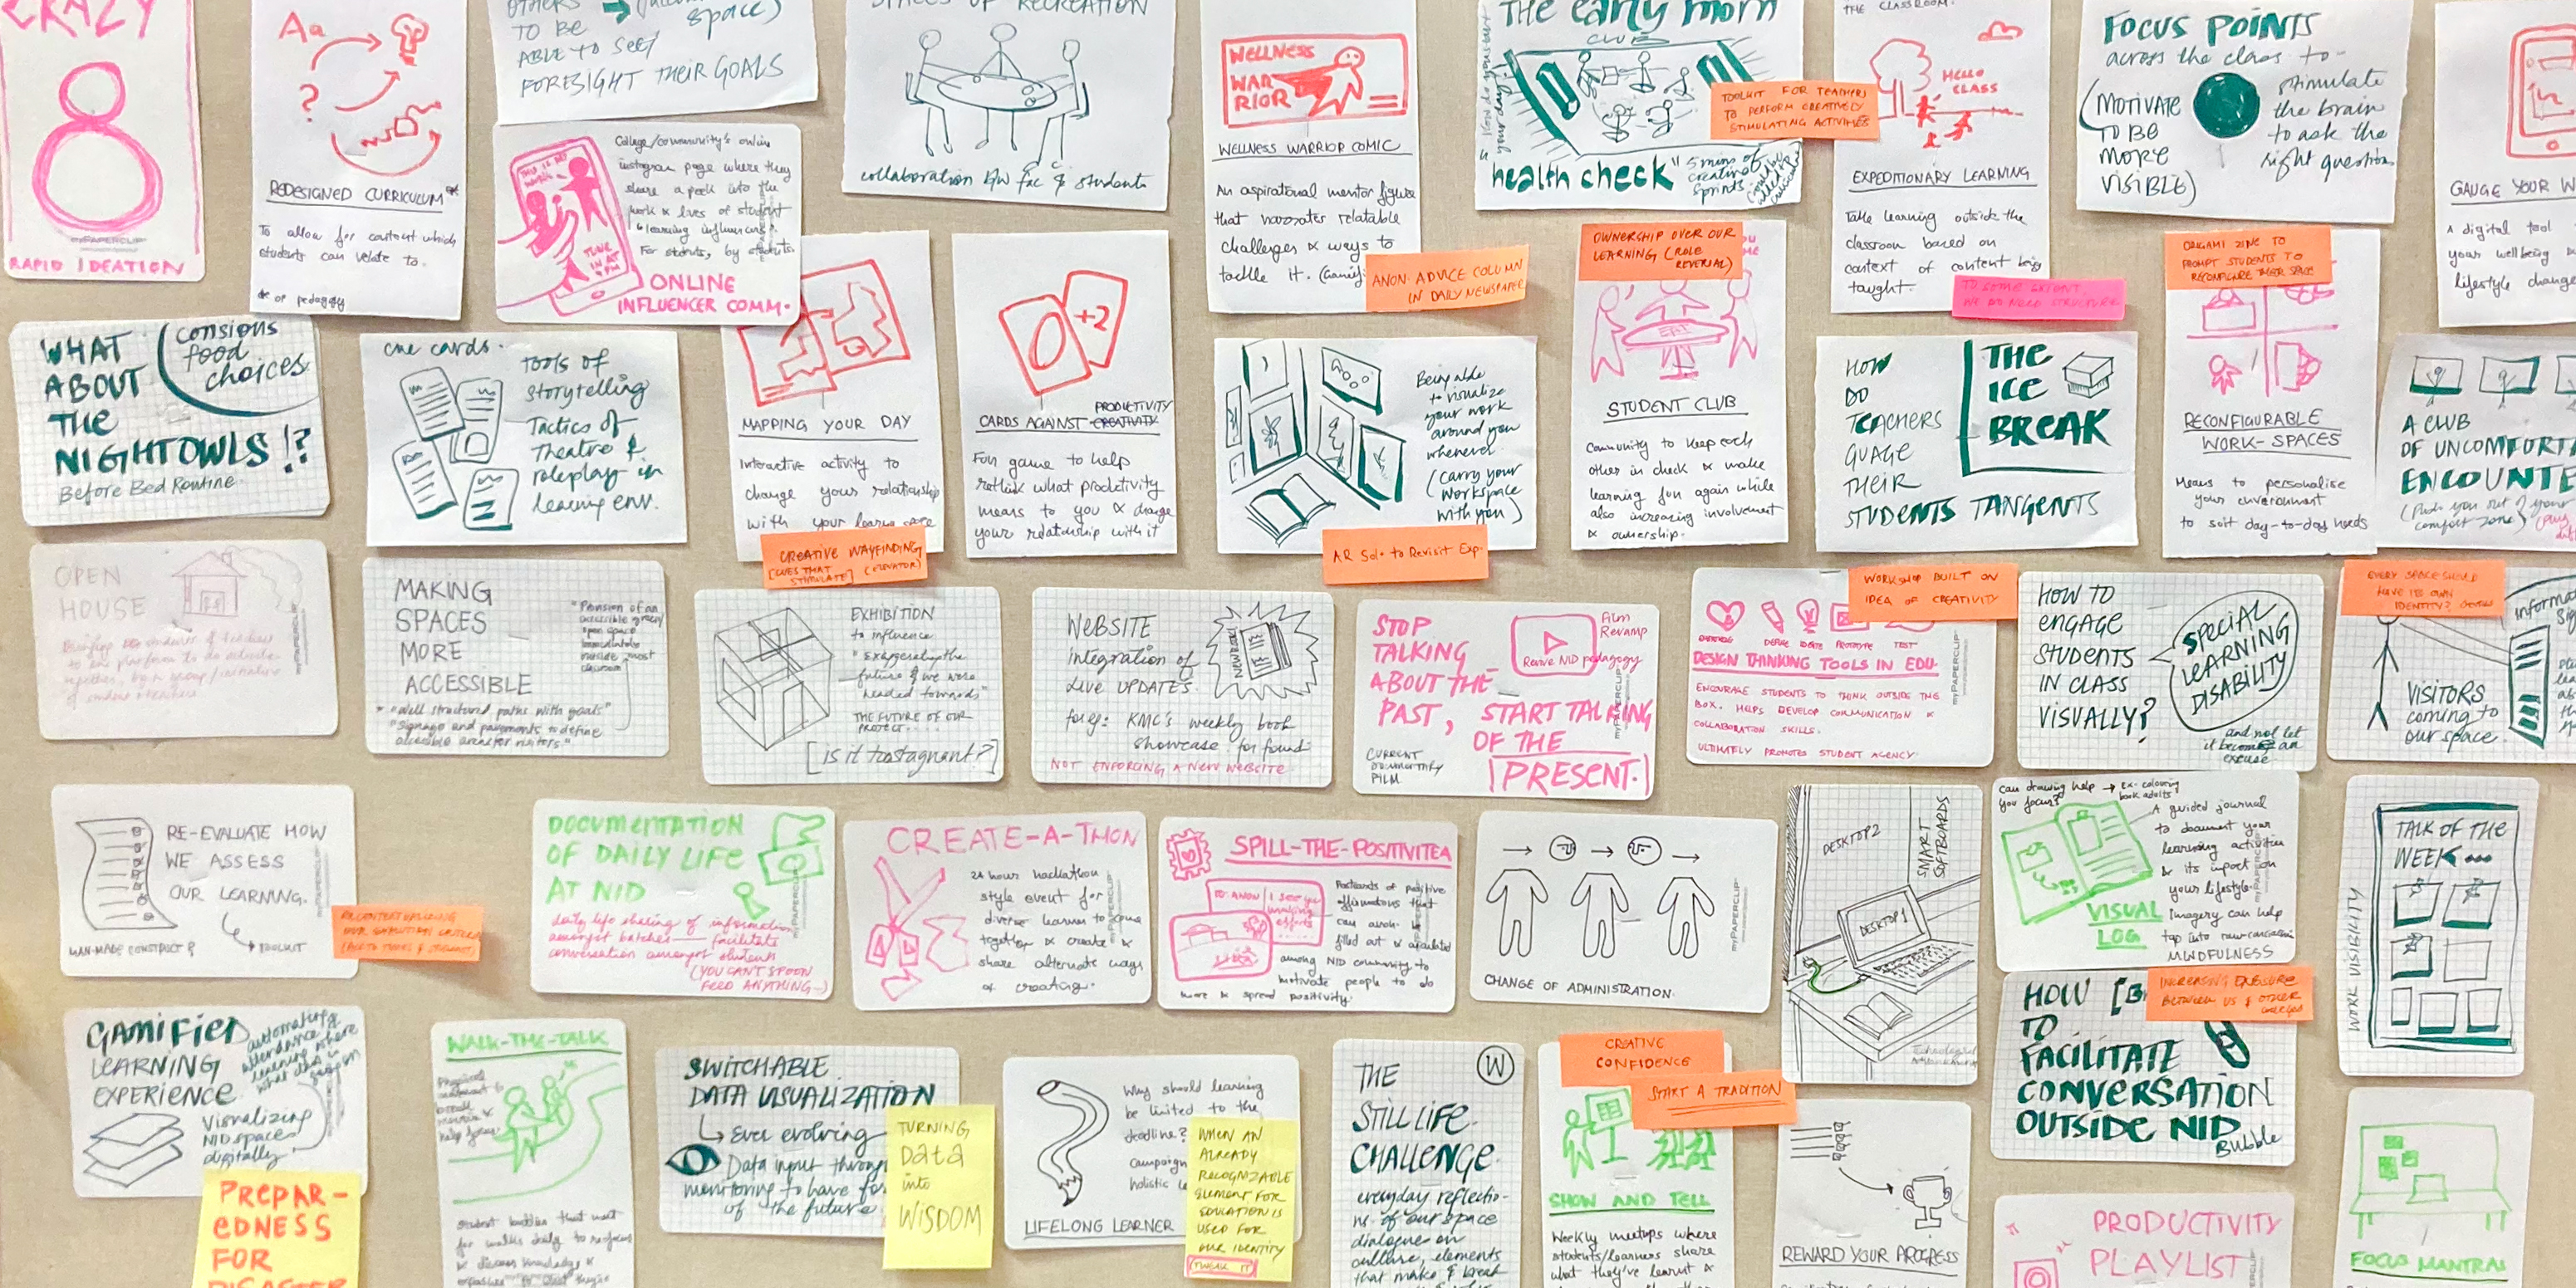 CRAZY
RAPID IDEATION
Aa
?
REDESIGNED CURRICULUM*
To allow for content which
students can relate to.
* or pedagogy
OTHERS
space)
TO BE
ABLE TO SEE/
FORESIGHT THEIR GOALS
College/community's online
instagram page where they
share a peek into the
work & lives of student
learning influencers.
For students, by students.
TUNE
IN AT
ONLINE
INFLUENCER COMM.
SPACES OF RECREATION
collaboration b/w fac & students
WELLNESS
WAR
RIOR
WELLNESS WARRIOR COMIC
An aspirational mentor figure
that narrates relatable
challenges & ways to
tackle it.
ANON. ADVICE COLUMN
IN DAILY NEWSPAPER
THE early morn
CLUB
"health check"
5 mins of
creative
sprints
TOOLKIT FOR TEACHERS
TO PERFORM CREATIVELY
STIMULATING ACTIVITIES
THE CLASSROOM.
HELLO
CLASS
EXPEDITIONARY LEARNING
Take learning outside the
classroom based on
context of content being
taught.
TO SOME EXTENT
WE DO NEED STRUCTURE
FOCUS POINTS
across the class to
(MOTIVATE
TO BE
MORE
VISIBLE)
stimulate
the brain
to ask the
right question
GAUGE YOUR W
A digital tool
your wellbeing
lifestyle change
WHAT
ABOUT
THE
NIGHTOWLS !?
Before Bed Routine
consious
food
choices
cue cards.
Tools of
storytelling
Tactics of
Theatre &
roleplay in
learning env.
MAPPING YOUR DAY
Interactive activity to
change your relationship
with your learning space
CREATIVE WAYFINDING
[CUES THAT
STIMULATE] (ELEVATOR)
+2
PRODUCTIVITY
CARDS AGAINST CREATIVITY
Fun game to help
rethink what productivity
means to you & change
your relationship with it
Being able
to visualize
your work
around you
whenever.
(carry your
workspace
with you)
AR Sol. to Revisit Exp.
OWNERSHIP OVER OUR
LEARNING (ROLE
REVERSAL)
STUDENT CLUB
Community to keep each
other in check & make
learning fun again while
also increasing involvement
& ownership.
HOW
DO
TEACHERS
GUAGE
THEIR
STUDENTS TANGENTS
THE
ICE
BREAK
ORIGAMI ZINE TO
PROMPT STUDENTS TO
RECONFIGURE THEIR SPACE
RECONFIGURABLE
WORK-SPACES
Means to personalise
your environment
to suit day-to-day needs
A CLUB
OF UNCOMFORT
ENCOUNTE
(Push you out of your
comfort zone)
OPEN
HOUSE
MAKING
SPACES
MORE
ACCESSIBLE
"Provision of an
accessible green/
open space
immediately
outside most
classrooms"
* "Well structured paths with goals"
"Signage and pavements to define
accessible areas for visitors"
EXHIBITION
to influence
"Exaggerating the
future if we were
headed towards"
THE FUTURE OF OUR
PROJECT....
[is it too stagnant?]
WEBSITE
integration of
LIVE UPDATES.
for eg: KMC's weekly book
showcase for found
NOT ENFORCING A NEW WEBSITE
NEW BOOK
STOP
TALKING
ABOUT THE
PAST, START TALKING
OF THE
PRESENT.
CURRENT
DOCUMENTARY
FILM
Film
Revamp
Revive NID pedagogy
myPAPERCLIP
DEFINE IDEATE PROTOTYPE TEST
DESIGN THINKING TOOLS IN EDU.
ENCOURAGE STUDENTS TO THINK OUTSIDE THE
BOX. HELPS DEVELOP COMMUNICATION &
COLLABORATION SKILLS.
ULTIMATELY PROMOTES STUDENT AGENCY
myPAPERCLIP
WORKSHOP BUILT ON
IDEA OF CREATIVITY
HOW TO
ENGAGE
STUDENTS
IN CLASS
VISUALLY?
SPECIAL
LEARNING
DISABILITY
and not let
it become an
excuse
EVERY SPACE SHOULD
HAVE ITS OWN
IDENTITY?
VISITORS
coming to
our space
RE-EVALUATE HOW
WE ASSESS
OUR LEARNING.
MAN-MADE CONSTRUCT
TOOLKIT
DOCUMENTATION
OF DAILY LIFE
AT NID
daily life sharing of information
amongst batches facilitate
conversation amongst students
(YOU CAN'T SPOON
FEED ANYTHING)
myPAPERCLIP
CREATE-A-THON
24 hour hackathon
style event for
diverse learners to come
together & create &
share alternate ways
of creating.
myPAPERCLIP
SPILL-THE-POSITIVITEA
TO: ANON
I see you
making
efforts
Postcards of positive
affirmations that
can anon. be
filled out & circulated
among NID community to
motivate people to do
more & spread positivity.
myPAPERCLIP
CHANGE OF ADMINISTRATION.
myPAPERCLIP
DESKTOP2
SMART
SOFTBOARDS
DESKTOP1
can drawing help → ex- colouring
you focus? book adults
A guided journal
to document your
learning activities
& its impact on
your lifestyle.
Imagery can help
tap into
MINDFULNESS
VISUAL
LOG
TALK OF THE
WEEK...
WORK VISIBILITY
GAMIFIED
LEARNING
EXPERIENCE
Visualizing
NID spaces
digitally
PREPAR-
EDNESS
FOR
DISASTER
WALK-THE-TALK
Student buddies that meet
for walks daily to refocus
& discuss knowledge &
SWITCHABLE
DATA VISUALIZATION
Ever evolving
Data input through
monitoring to have
of the future
TURNING
Data
into
WISDOM
Why should learning
be limited to the
deadline?
campaign
holistic
LIFELONG LEARNER
WHEN AN
ALREADY
RECOGNIZABLE
ELEMENT FOR
EDUCATION IS
USED FOR
OUR IDENTITY
TWEAK IT
W
THE
STILL LIFE
CHALLENGE.
everyday reflectio-
ns of our space
dialogue on
culture, elements
that make & break
CREATIVE
CONFIDENCE
START A TRADITION
SHOW AND TELL
Weekly meetups where
students/learners share
what they've learnt &
REWARD YOUR PROGRESS
HOW
TO
FACILITATE
CONVERSATION
OUTSIDE NID
Bubble
INCREASING EXPOSURE
BETWEEN US & OTHER
COLLEGES
PRODUCTIVITY
PLAYLIST
FOCUS MANTRAS